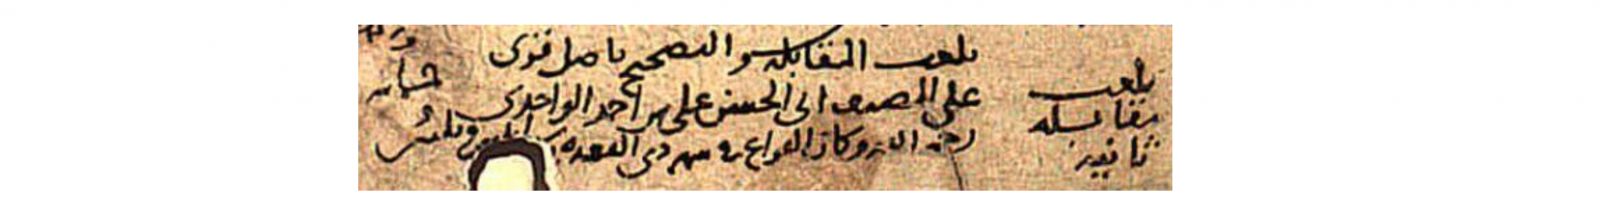 بلغت المقابلة والتصحيح بأصل قرئ
على المصنف ابى الحسن على بن احمد الواحدى
رحمه الله وكان الفراغ فى شهر ذى القعدة سنة اثنين وثلثين
بلغت
مقابلة
ثانية